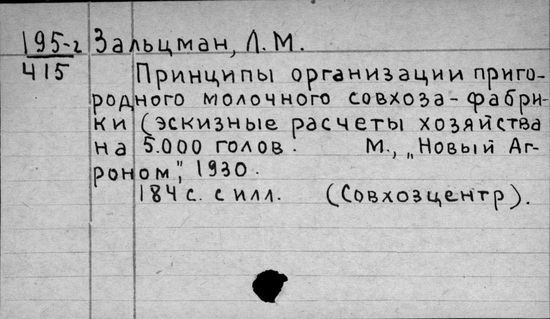 195-г Зальцман, Л.М.
415
Принципы организации приго-
родного молочного совхоза-фабри-
ки (эскизные расчеты хозяйства
на 5.000 голов. М., „Новый Аг-
роном", 1930.
184 с. с илл. (Совхозцентр).